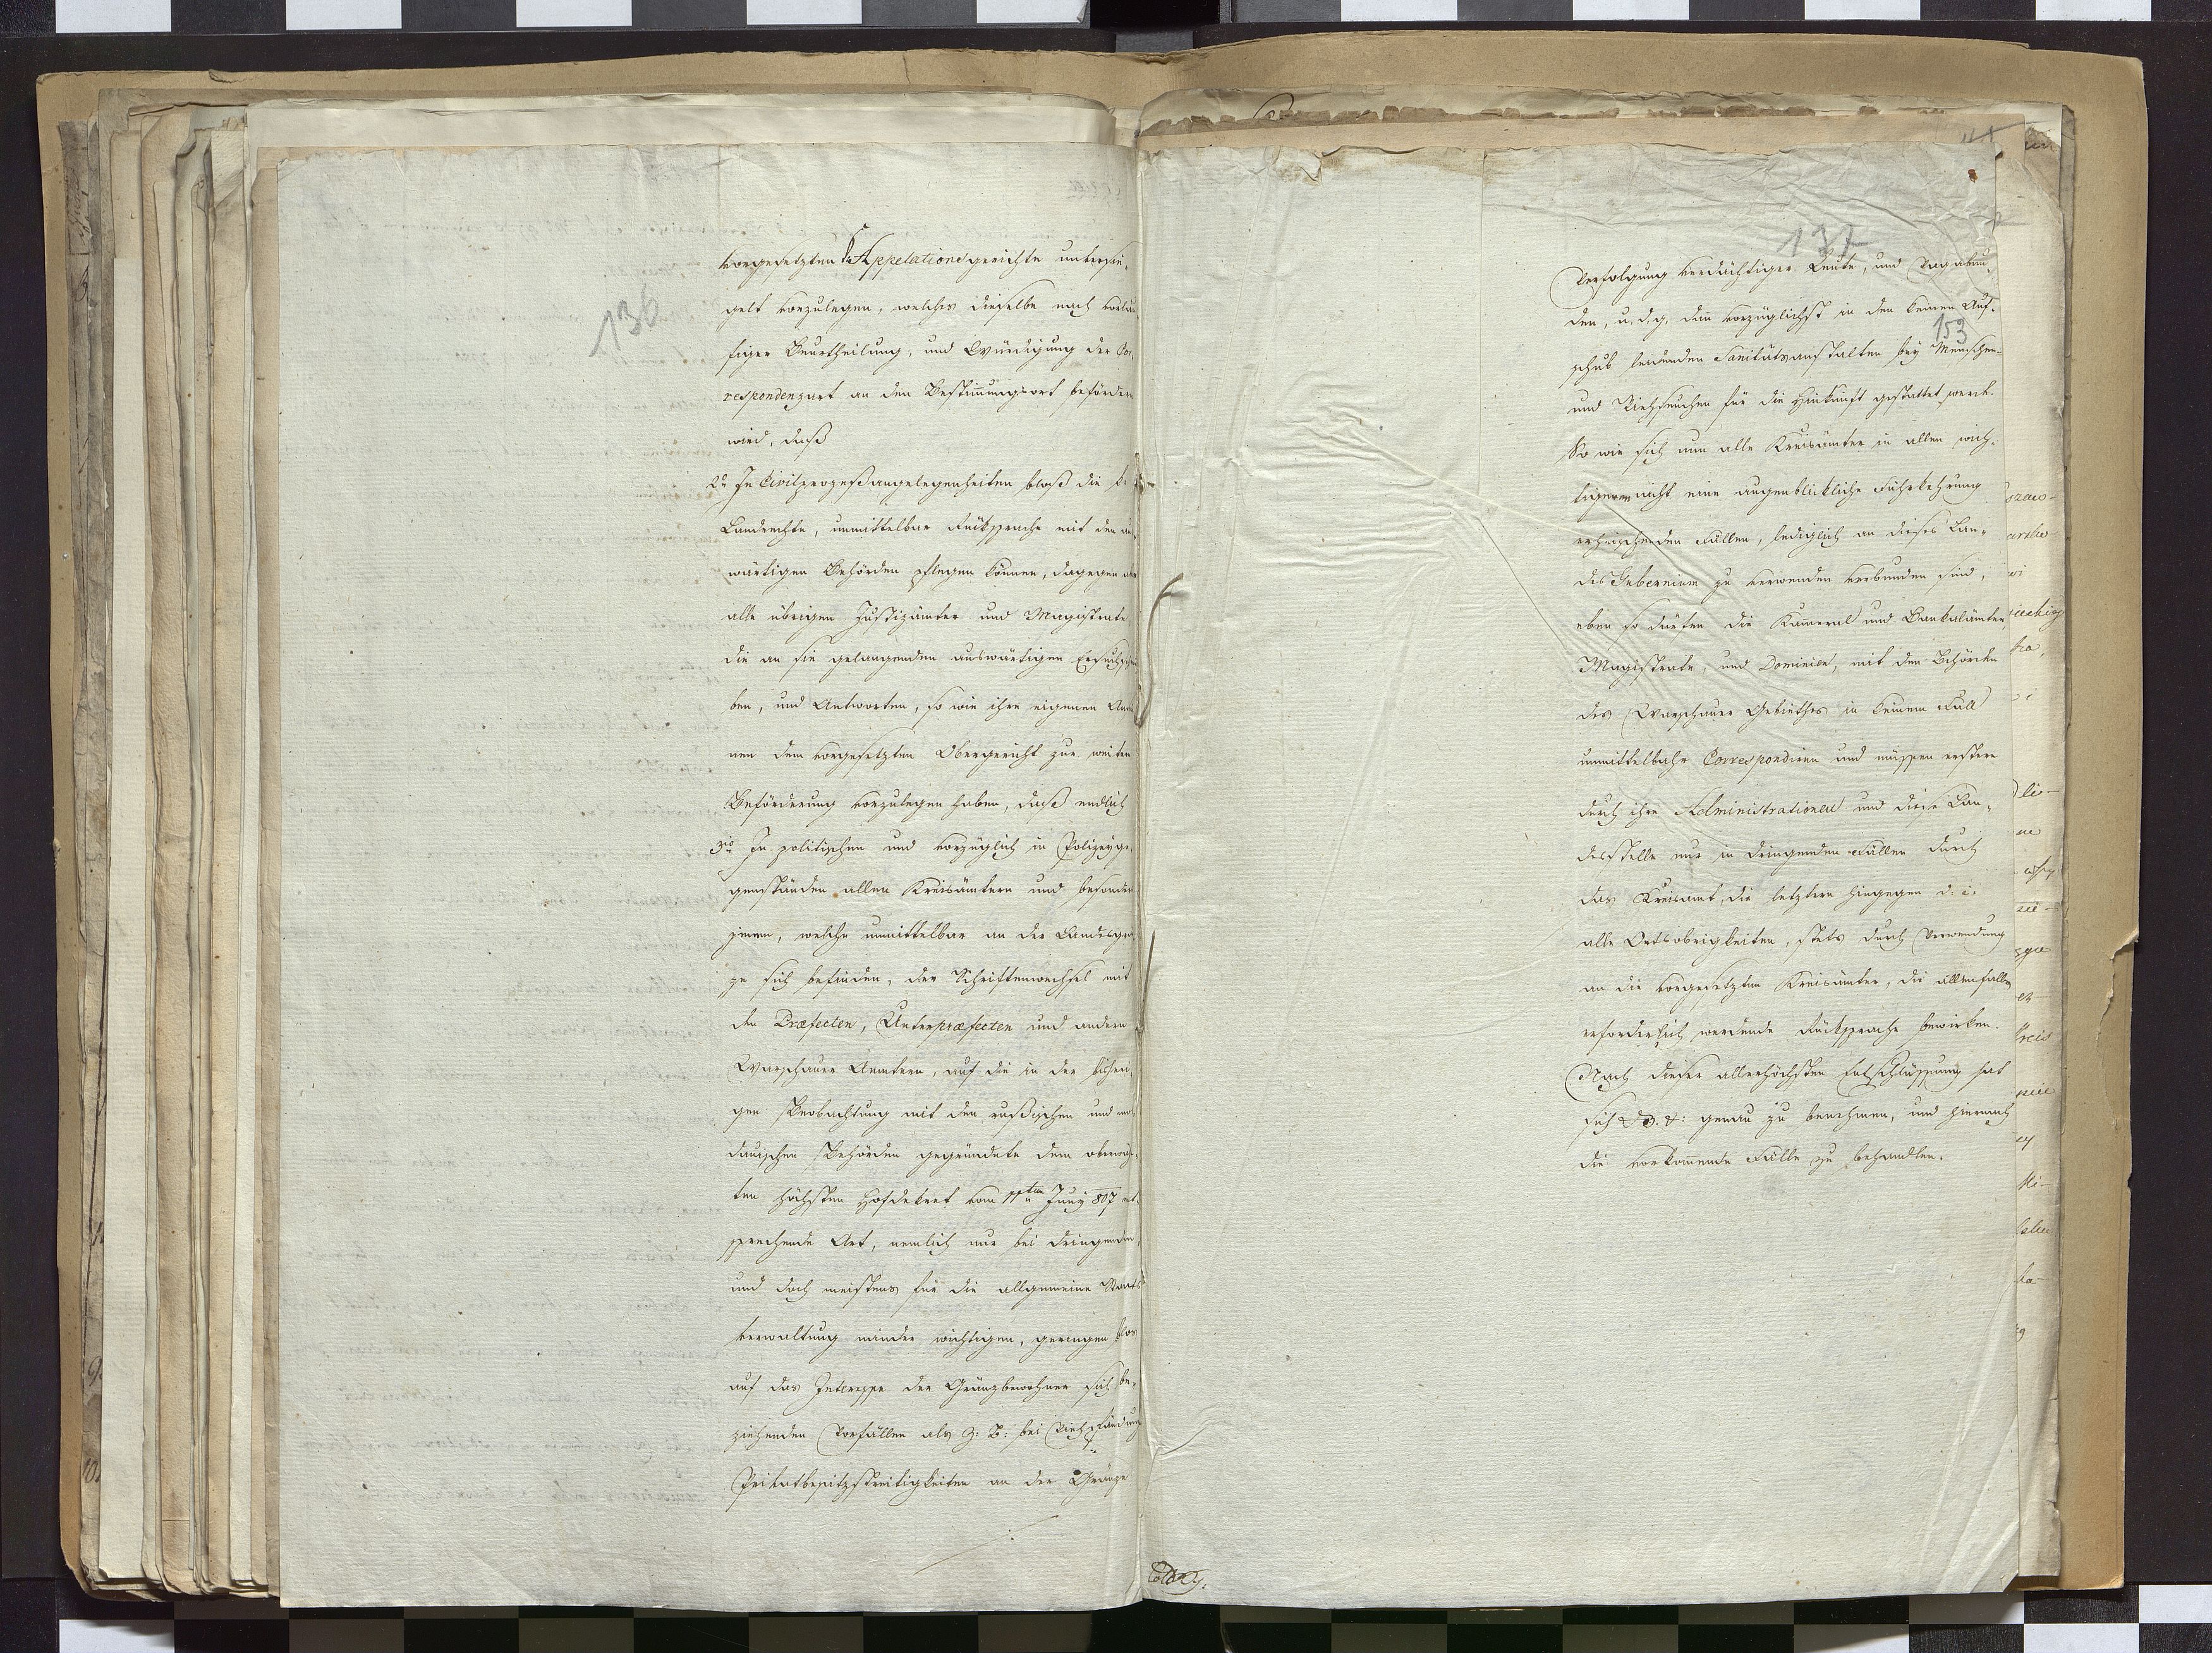 136
vorgesetzten k. Appelationsgerichte untersie-
gelt vorzulegen, welches dieselbe nach vorläu
figer Beurtheilung, und Würdigung der Cor-
respondenzart an den Bestimungsort befördern
wird, daß
2do In Civilprozeßangelegenheiten bloß die k.
Landrechte, unmittelbar Rüksprache mit den aus
wärtigen Behörden pflegen können, dagegen aber
alle übrigen Justizämter und Magistrate
die an sie gelangenden auswärtigen Ersuchschrei
ben, und Antworten, so wie ihre eigenen
nen dem vorgesetzten Obergericht zur weitern
Beförderung vorzulegen haben, daß endlich
3tio In politischen und vorzüglich in Polizeyge-
genständen allen Kreisämtern und besonders
jenen, welche unmittelbar an der Landesgrän
ze sich befinden, der Schriftenwechsel mit
den Præfecten, Unterpræfecten und andern
Warschauer Aemtern, auf die in der bisheri-
gen Beobachtung mit den rußischen und mol
dauischen Behörden gegründete dem oberwähn-
ten höchsten Hofdekret vom 11ten Juny 807 ent-
sprechende Art, nemlich nur bei dringenden,
und doch meistens für die allgemeine Staats
verwaltung minder wichtigen, geringen blos
auf das Interesse der Gränzbewohner sich be-
ziehenden Vorfällen als z: B: bei Viehpfändung
Privatbesitzstreitigkeiten an der Gränze
137
153
Verfolgung verdächtiger Leute, und Vagabun-
den, u. d. g. dan vorzüglichst in den keinen Auf-
schub leidenden Sanitätsanstalten bey Menschen-
und Viehseuchen für die Hinkunft gestattet werde.
So wie sich nun alle Kreisämter in allen wich-
tigern nicht eine augenblickliche Fürkehrung
erheischenden Fällen, lediglich an dieses Lan-
des Gubernium zu verwenden verbunden sind,
eben so dürfen die Kameral und Bankalämter,
Magistrate, und Dominien, mit den Behörden
des Warschauer Gebiethes in keinem Fall
unmittelbahr Correspondiren und müssen erstere
durch ihre Administrationen und diese Lan-
desstelle nur in dringenden Fällen durch
das Kreisamt, die letztern hingegen d. i.
alle Ortsobrigkeiten, stets durch Verwendung
an die vorgesetzten Kreisämter, die allenfalls
erforderlich werdende Rüksprache bewirken.
Nach dieser allerhöchsten Entschlüssung hat
sich genau zu benehmen, und hiernach
die vorkomende Fälle zu behandlen.